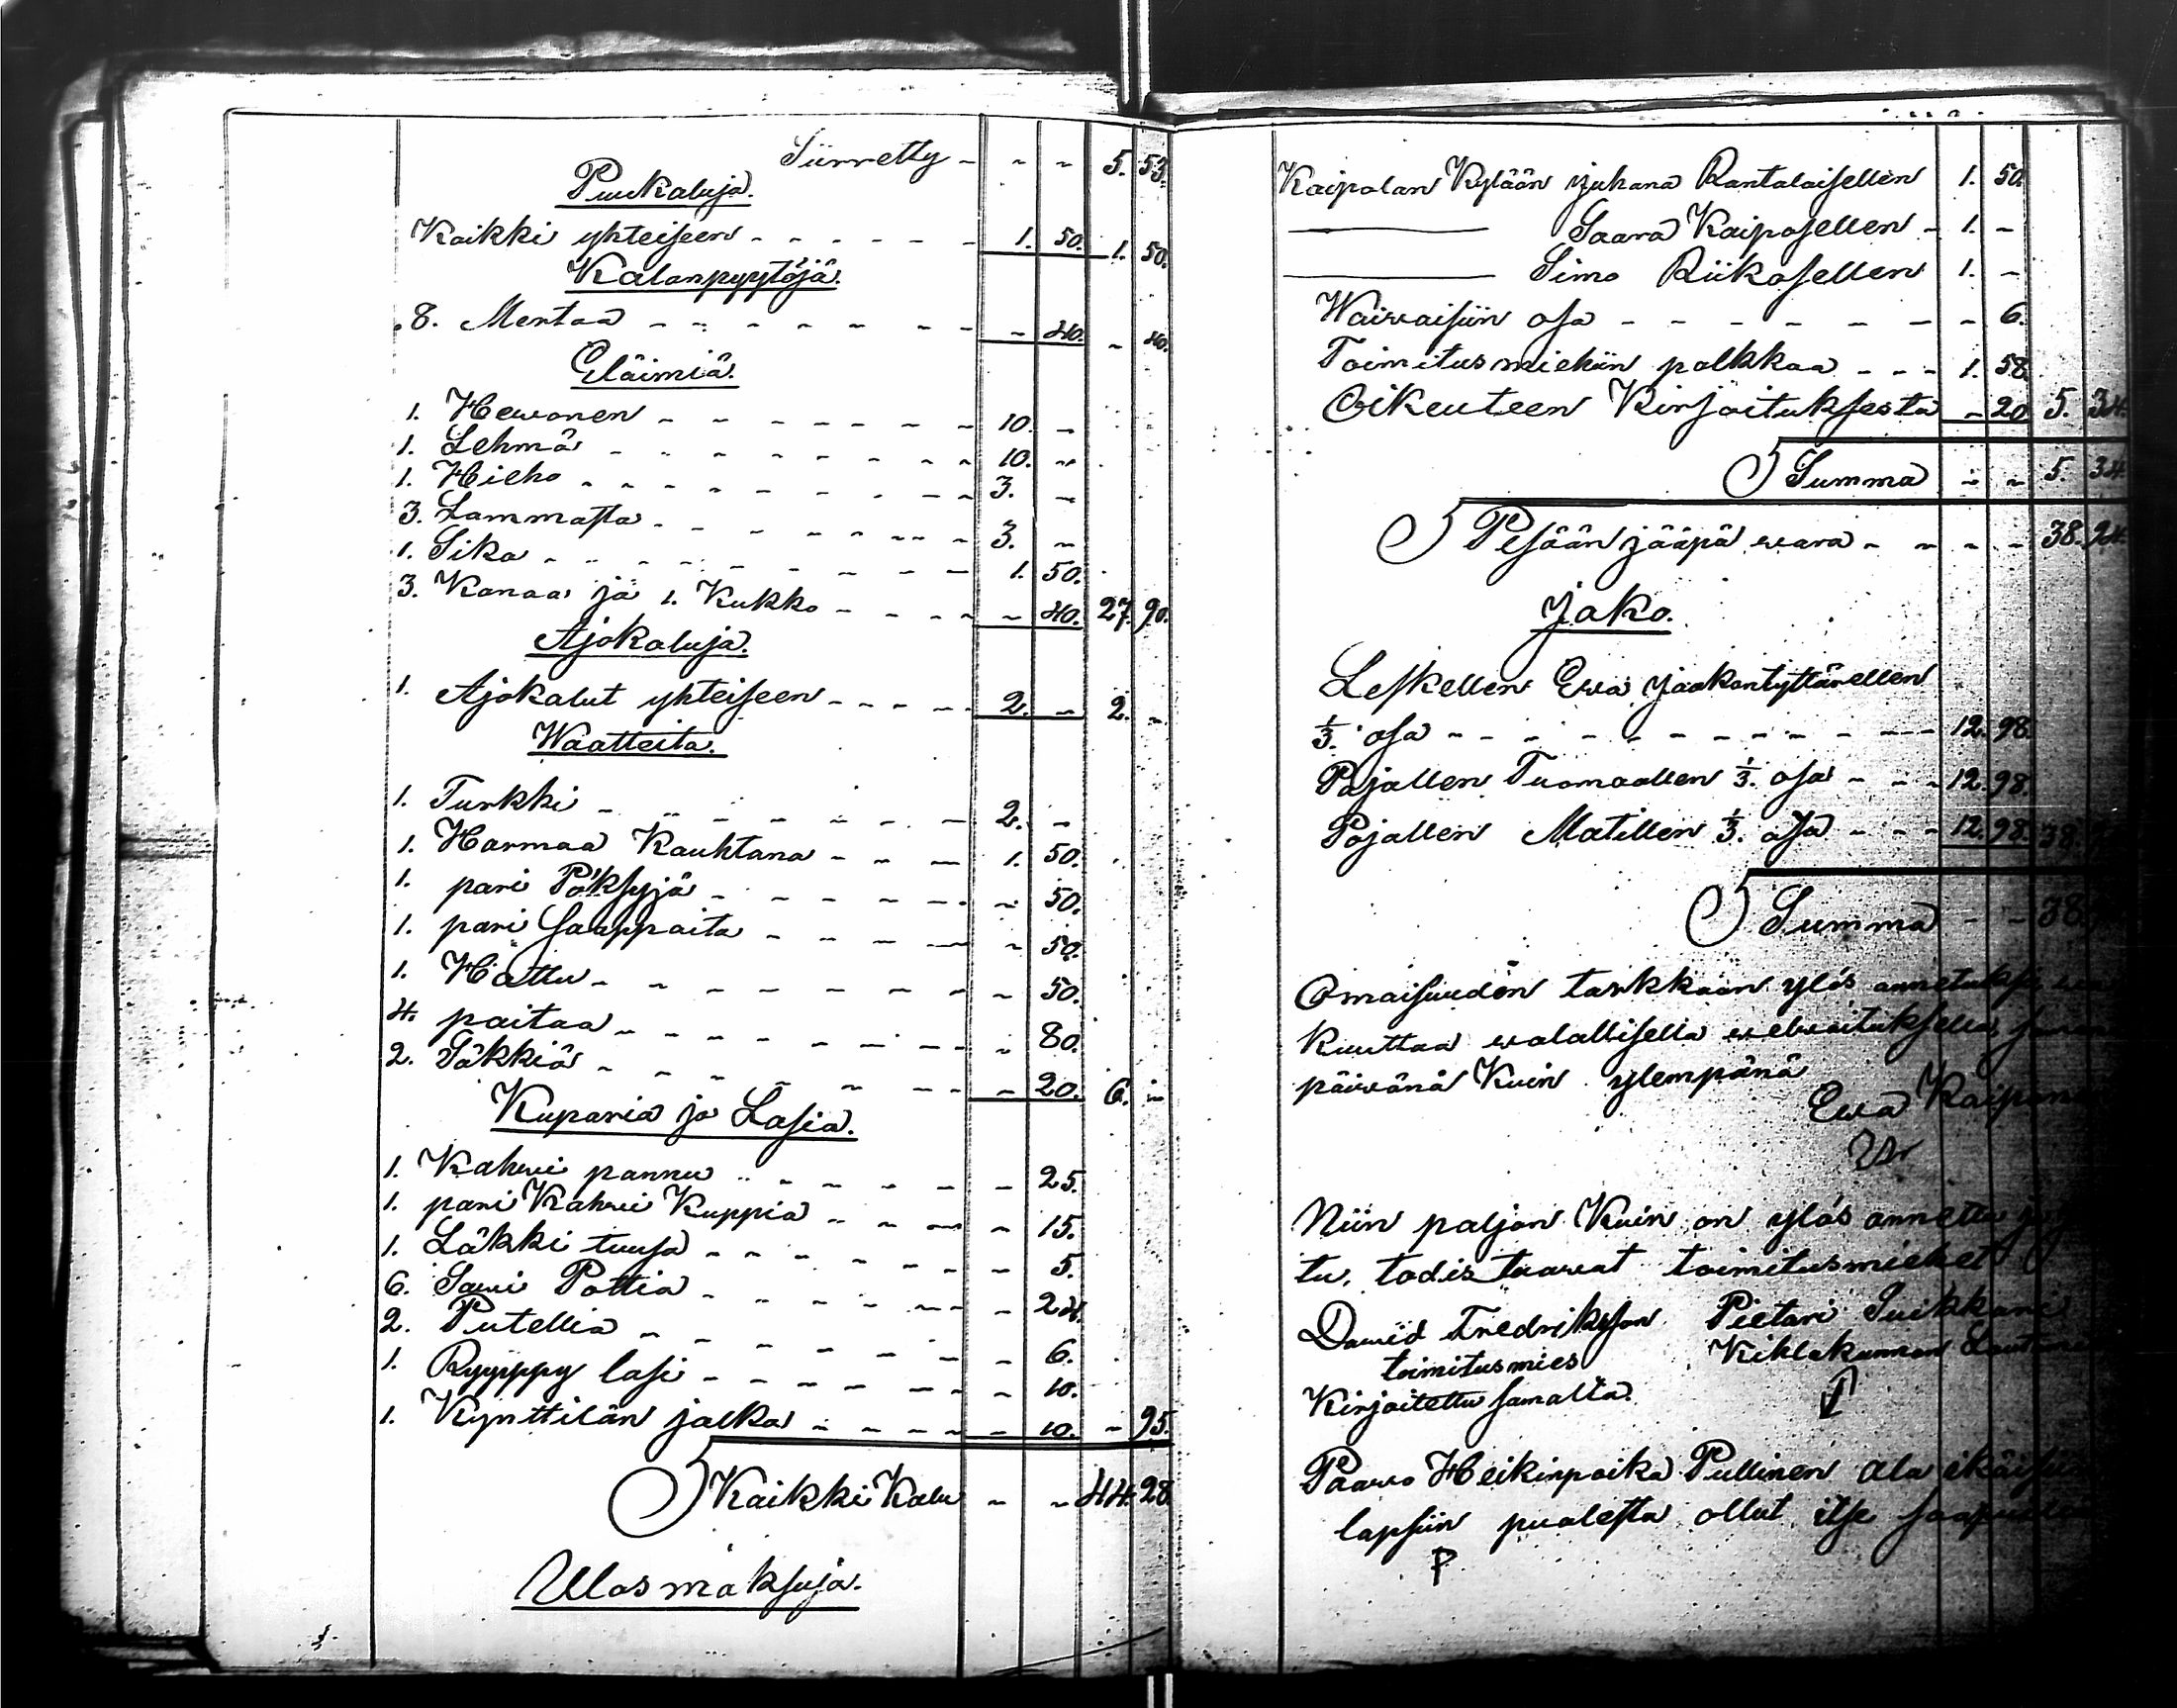 Siirretty - - - 5. 53.
Puukaluja.
Kaikki yhteiseen - - - - - - 1. 50. 1. 50.
Kalanpyytöjä.
8. Mertaa - - - - - - - - - 40. - 40.
Eläimiä.
1. Hewonen - - - - - - - 10. -
1. Lehmä - - - - - - - - 10. -
1. Hieho - - - - - - - - 3. -
3. Lammasta - - - - - - - 3. -
1. Sika - - - - - - - - 1. 50.
3. Kanaa ja 1. Kukko - - - - - 40. 27. 90.
Ajokaluja.
1. Ajokalut yhteiseen - - - - - 2. - 2. -
Waatteita.
1. Turkki - - - - - - - - 2. -
1. Harmaa Kauhtana - - - 1. 50.
1. pari Pöksyjä - - - - - - - 50.
1. pari saappaita - - - - - - 50.
1. Hattu - - - - - - - - - 50.
4. paitaa - - - - - - - - - 80.
2. Säkkiä - - - - - - - - 20. 6. -
Kuparia ja Lasia.
1. Kahwi pannu - - - - - - - 25.
1. pari Kahwi Kuppia - - - - 15.
1. Läkki tuusa - - - - - - - 5.
6. Sawi Pottia - - - - - - - 24.
2. Putellia - - - - - - - - 6.
1. Ryyppy lasi - - - - - - - 10.
1. Kynttilän jalka - - - - - - 10. - 95.
Kaikki Kalu - - 44. 28.
Ulosmaksuja.
Kaipolan Kylään Juhana Rantalaisellen 1. 50.
Saara Kaiposellen - 1. -
Simo Riikosellen 1. -
Waiwaisiin osa - - - - - - - - 6.
Toimitusmiehiin palkkaa - - - 1. 58.
Oikeuteen Kirjoituksesta - 20 5. 34.
Summa - - 5. 34
Pesään jääpä wara - - - - 38. 94.
Jako.
Leskellen Ewa Jaakontyttärellen
1/3. osa - - - - - - - - - - - - 12. 98.
Pojallen Tuomaallen 1/3. osa - - - 12. 98.
Pojallen Matillen 1/3. osa - - - 12. 98. 38.
Summa - - 38.
Omaisuuden tarkkaan ylös annetuksi
kuuttaa walallisella welwoituksella
päiwänä Kuin ylempänä
Ewa
Niin paljon Kuin on ylös annettu
tu, todistaawat toimitusmiehet
Dawid Fredriksson Pietari Suikkari
toimitusmies Kihlakunnan
Kirjoitettu samalla.
Paawo Heikinpoika Pullinen ala
lapsiin puolesta ollut itse
P